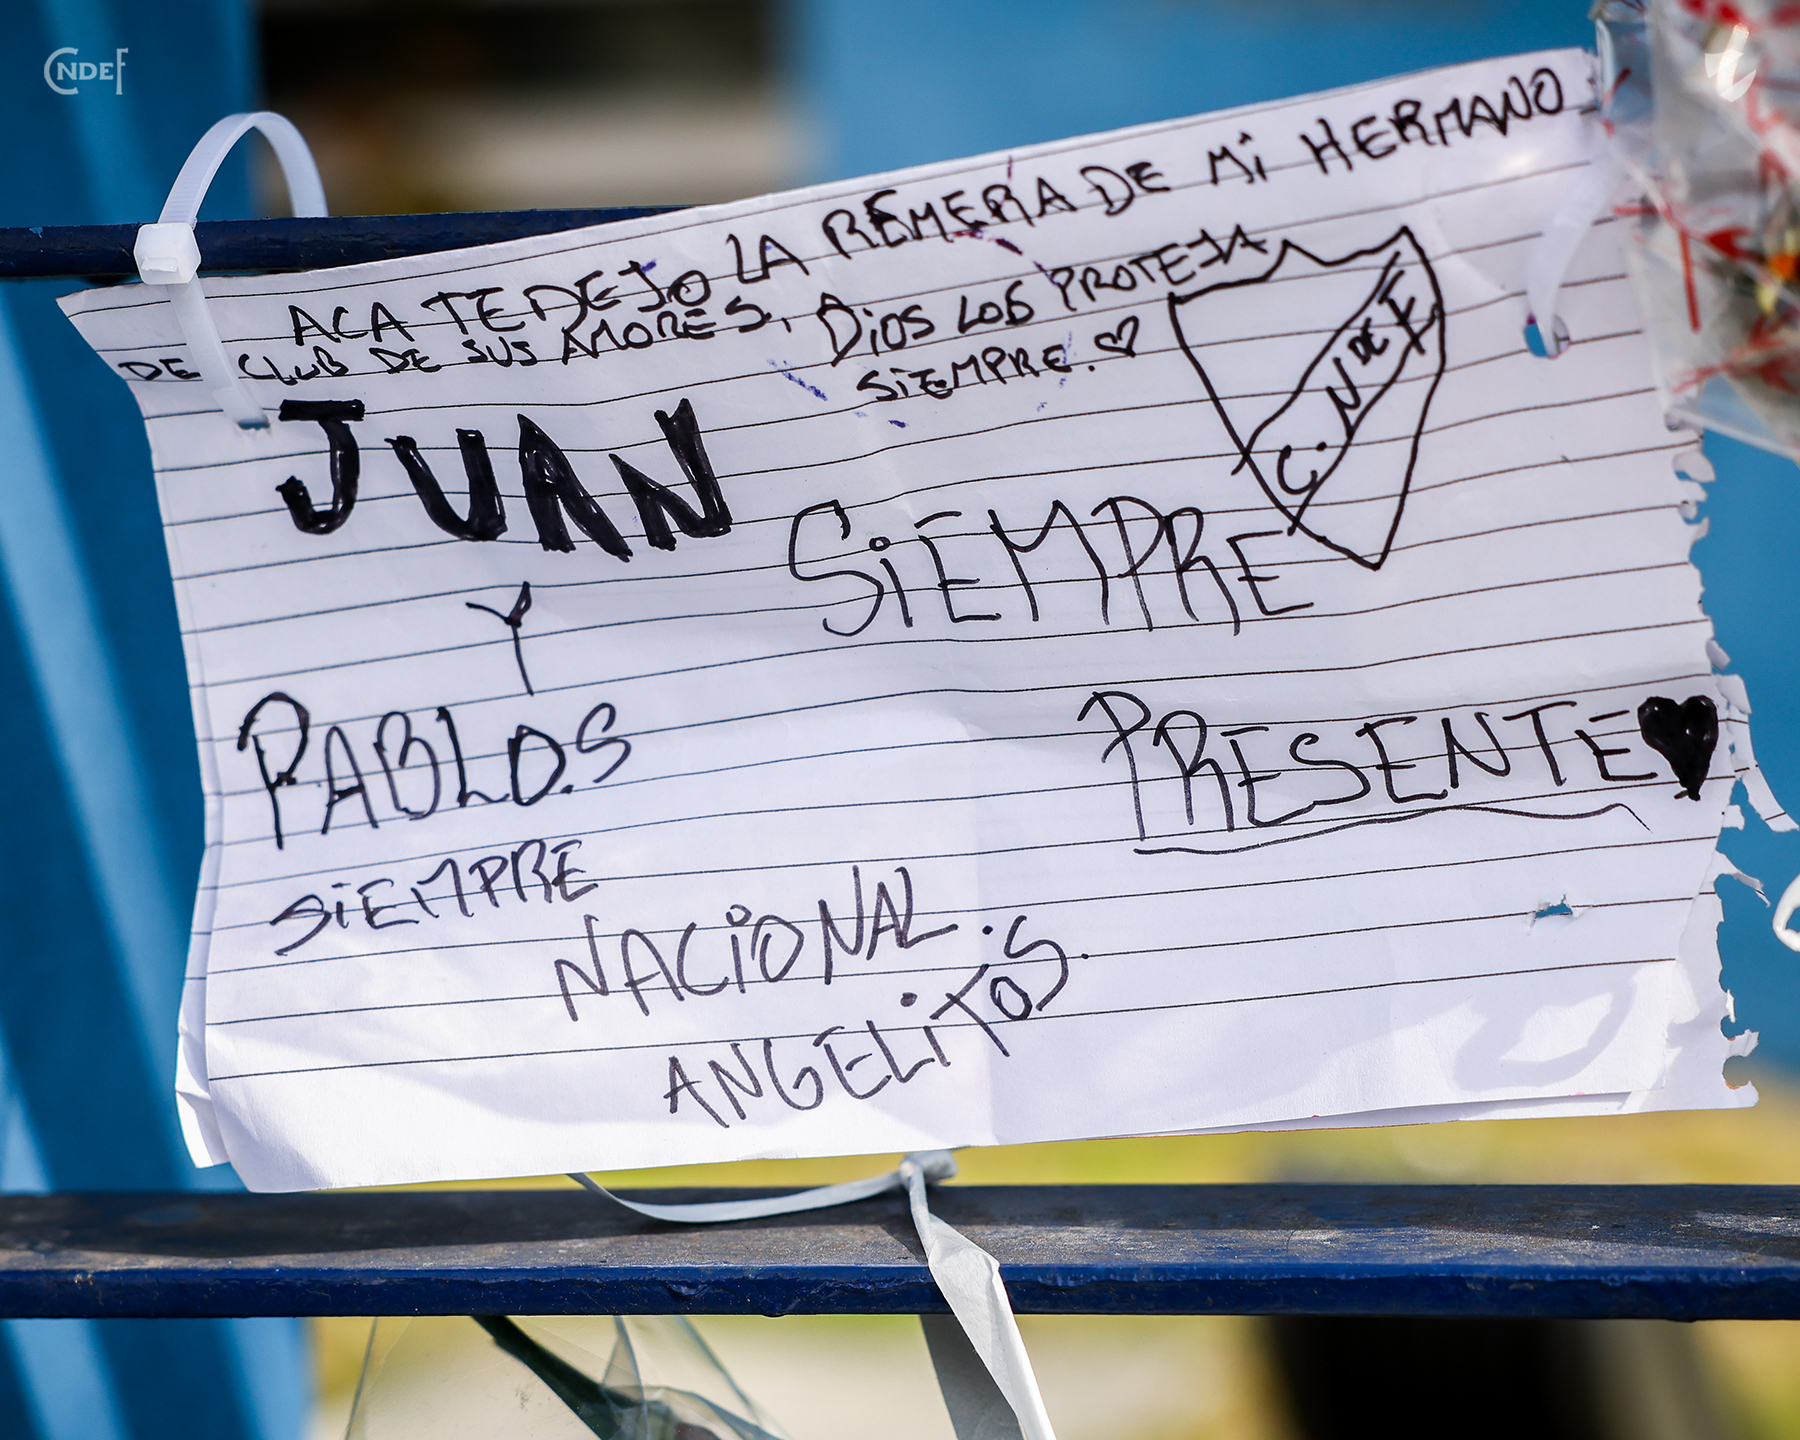 CNDEF
ACA TE DEJO LA REMERA DE Mi HERMANO
DE CLUB DE SUS AMORES, DiOS LOS PROTEJA
SiEMPRE.
C. N DE F
JUAN
Y
PABLO.S
SiEMPRE
PRESENTE
SiEMPRE
NACiONAL.
ANGELiTOS.